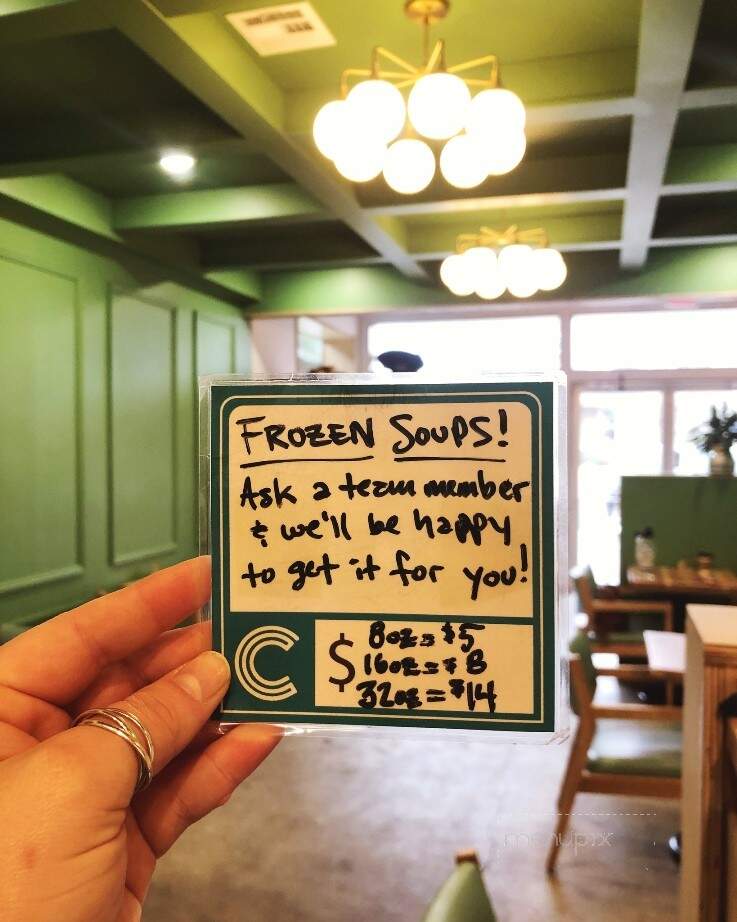 FROZEN SOUPS!
Ask a team member
& we'll be happy
to get it for you!
C
$
8oz = $5
16oz = $8
32oz = $14
menupix